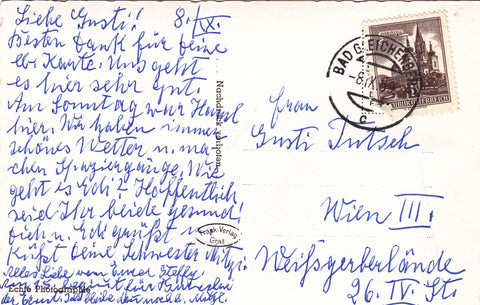 Liebe Gusti! 8./IX.
Besten Dank für Deine
lb. Karte. Uns geht
es hier sehr gut.
Am Sonntag war Hansl
hier. Wir haben immer
schönes Wetter u. ma-
chen Spaziergänge. Wie
geht es Edi? Hoffentlich
seid Ihr beide gesund!
Dich u. Edi grüßt u.
küßt Deine Schwester Mitzi.
Alles Liebe von Steffy
Echte Photographie
Nachdruck verboten.
Frank. Verlag
Graz
BAD GLEICHENBERG
REPUBLIK ÖSTERREICH
Frau
Gusti Tutsch
Wien III.
Weißgerberlände
26. IV. St.